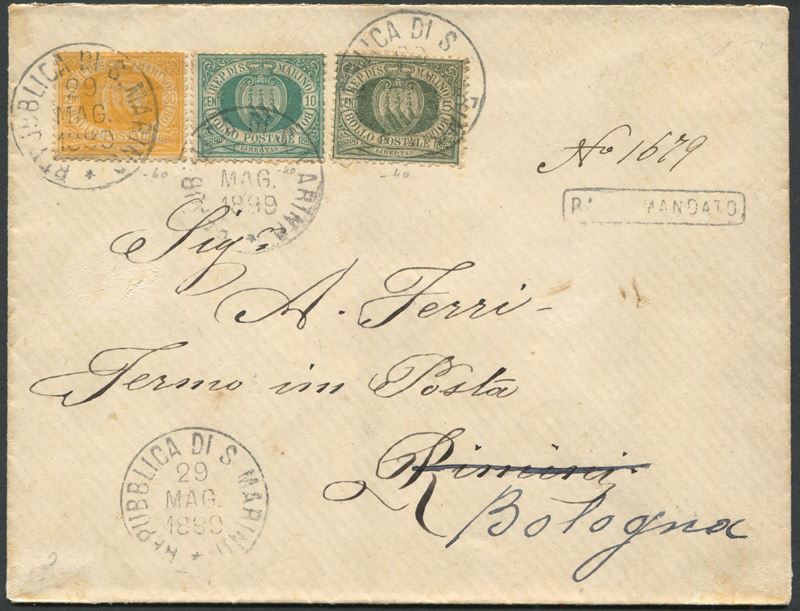 REPUBBLICA DI S. MARINO
29
MAG.
1899
30
REP. DI S. MARINO
CENT 10
BOLLO POSTALE
LIBERTAS
REP. DI S. MARINO
CENT 5
BOLLO POSTALE
LIBERTAS
BLICA DI S
-60
-40
-40
MARINO
MAG.
1899
No 1679
R MANDATO
Sigr
A. Ferri-
Fermo im Posta
Rimini
Bologna
REPUBBLICA DI S. MARINO
29
MAG.
1899